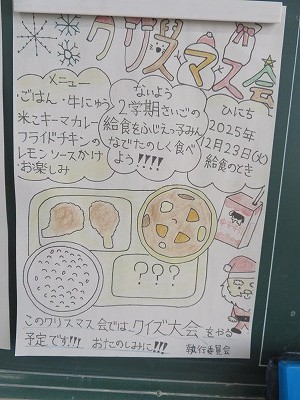 クリスマス会
メニュー
・ごはん・牛にゅう
米こキーマカレー
フライドチキンの
レモンソースかけ
・お楽しみ
ないよう
2学期さいごの
給食をふじえっ子みん
なでたのしく食べ
よう!!!!
ひにち
2025年
12月23日(火)
給食のとき
???
このクリスマス会では、クイズ大会をやる
予定です!!! おたのしみに!!!
執行委員会